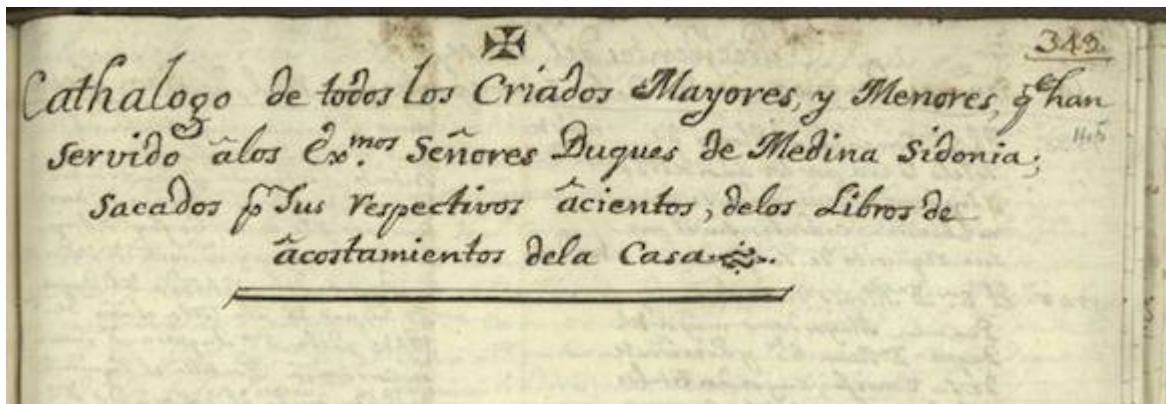 ✠
343.
Cathalogo de todos los Criados Mayores, y Menores, q̃ han
145
servido âlos Ex.mos Señores Duques de Medina Sidonia;
Sacados p̃ Sus respectivos âcientos, delos Libros de
âcostamientos dela Casa